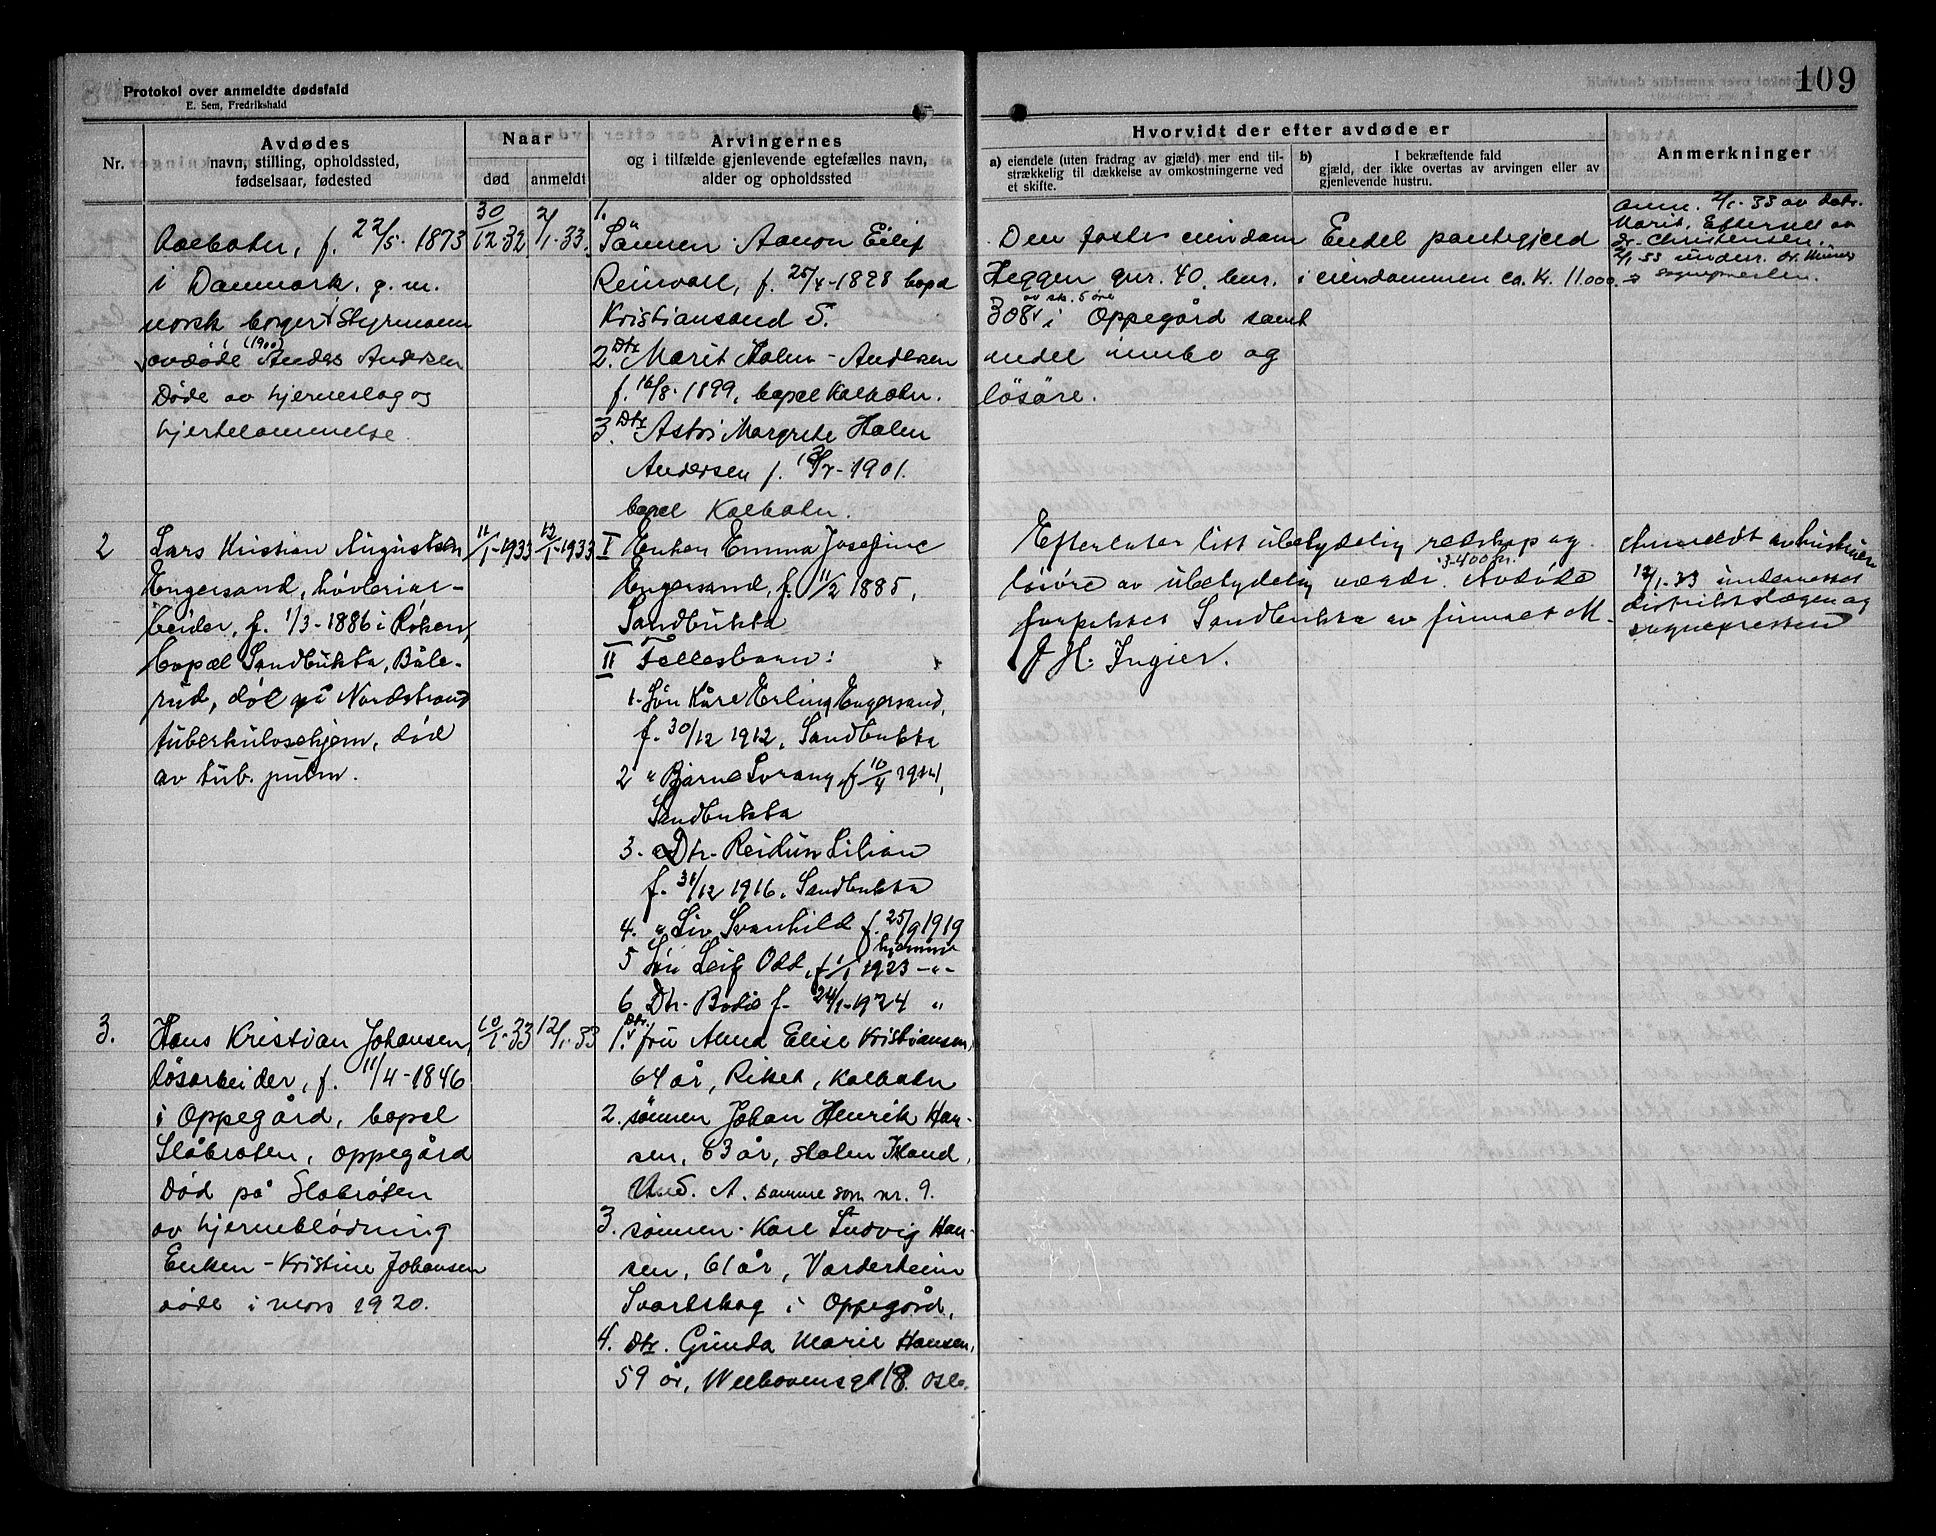 109
Protokol over anmeldte dødsfald
E. Sem, Fredrikshald
Nr.
Avdødes
navn, stilling, opholdssted,
fødselsaar, fødested
Naar
død
anmeldt
Arvingernes
og i tilfælde gjenlevende egtefælles navn,
alder og opholdssted
Hvorvidt der efter avdøde er
a) eiendele (uten fradrag av gjæld) mer end til-
strækkelig til dækkelse av omkostningerne ved
et skifte.
b) I bekræftende fald
gjæld, der ikke overtas av arvingen eller av
gjenlevende hustru.
Anmerkninger
Kolbotn, f. 22/5-1873
i Danmark, g.m.
norsk borger Styrmann
avdøde (1900) Andes Andersen
Døde av hjerneslag og
hjertelammelse.
30/12 32
2/1-33.
1.
Sönnen Aanon Eilif
Reinvall, f. 25/4-1898 bopel
Kristiansand S.
2. Dtr Marit Holm-Andersen
f. 16/8-1899, bopel Kolbotn.
3. Dtr Astri Margrete Holm
Andersen f. -1901.
bopel Kolbotn.
Den faste eiendom
Heggen gnr. 40, bnr.
308 av sk. 5 öre i Oppegård samt
endel innbo og
lösöre.
Endel pantegjeld
i eiendommen ca. Kr. 11.000.-
Anm. 2/1-33 av datr.
Marit. Attest av
dr. Christensen.
2/1 33 underr.
sognepresten.
2
Lars Kristian Augustsen
Engersand, høvleriar-
beider, f. 1/3-1886 i Røken,
bopæl Sandbukta, Båle-
rud, død på Nordstrand
tuberkulosehjem, død
av tub. pulm.
11/1-1933
12/1-1933
I Enken Emma Josefine
Engersand, f. 11/2 1885,
Sandbukta
II Fellesbarn:
1. Søn Kåre Erling Engersand,
f. 30/12 1912, Sandbukta
2 " Bjarne Svrang, f 10/4 1914,
Sandbukta
3. Dtr. Reidun Lilian
f. 31/12 1916, Sandbukta
4. " Liv Svanhild f. 25/9 1919
hjemme
5 Søn Leif Odd, f 1/1 1923 -"-
6 Dtr. Bodil f. 24/1-1924 "
Efterlater litt ubetydelig redskap og
løsøre av ubetydelig værdi. 3-400 kr. Avdøde
forpaktet Sandbukta av firmaet M.
J H. Ingier.
Anmeldt av hustruen
12/1-33 underrettet
distriktslægen og
sognepresten
3.
Hans Kristian Johansen,
løsarbeider, f. 11/4-1846
i Oppegård, bopel
Slåbråten, Oppegård
Død på Slåbråten
av hjerneblödning
Enken - Kristine Johansen
døde i mars 1920.
10/1-33
12/1-33
1. Dtr. fru Anna Elise Kristiansen,
64 år, Riket, Kolbotn
2. sönnen Johan Henrik Han-
sen, 63 år, Staten Island,
U.S.A. samme som nr. 9.
3. sönnen Karl Ludvig Han-
sen, 61 år, Varderheim
Svartskog i Oppegård,
4. Dtr. Gunda Marie Hansen,
59 år, Welhavensgt 18. Oslo.